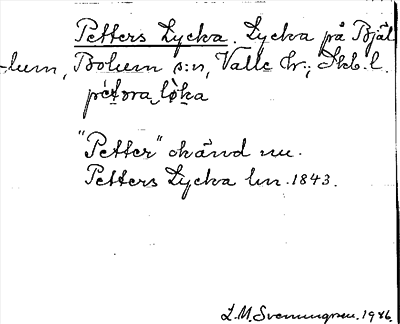 Petters Lycka. Lycka på Bjäl
-lum, Bolum s:n, Valle hr; Skb. l.
pètora lòka
"Petter" okänd nu.
Petters Lycka lm. 1843.
L.M. Svenungsson. 1926.